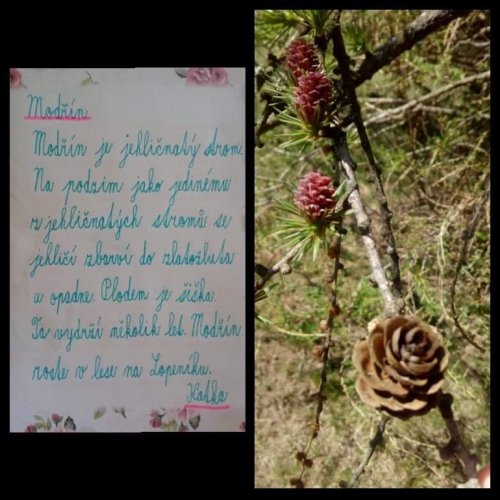 Modřín
Modřín je jehličnatý strom.
Na podzim jako jedinému
z jehličnatých stromů se
jehličí zbarví do zlatožluta
a opadne. Plodem je šiška.
Ta vydrží několik let. Modřín
roste v lese na Lopeníku.
Katka